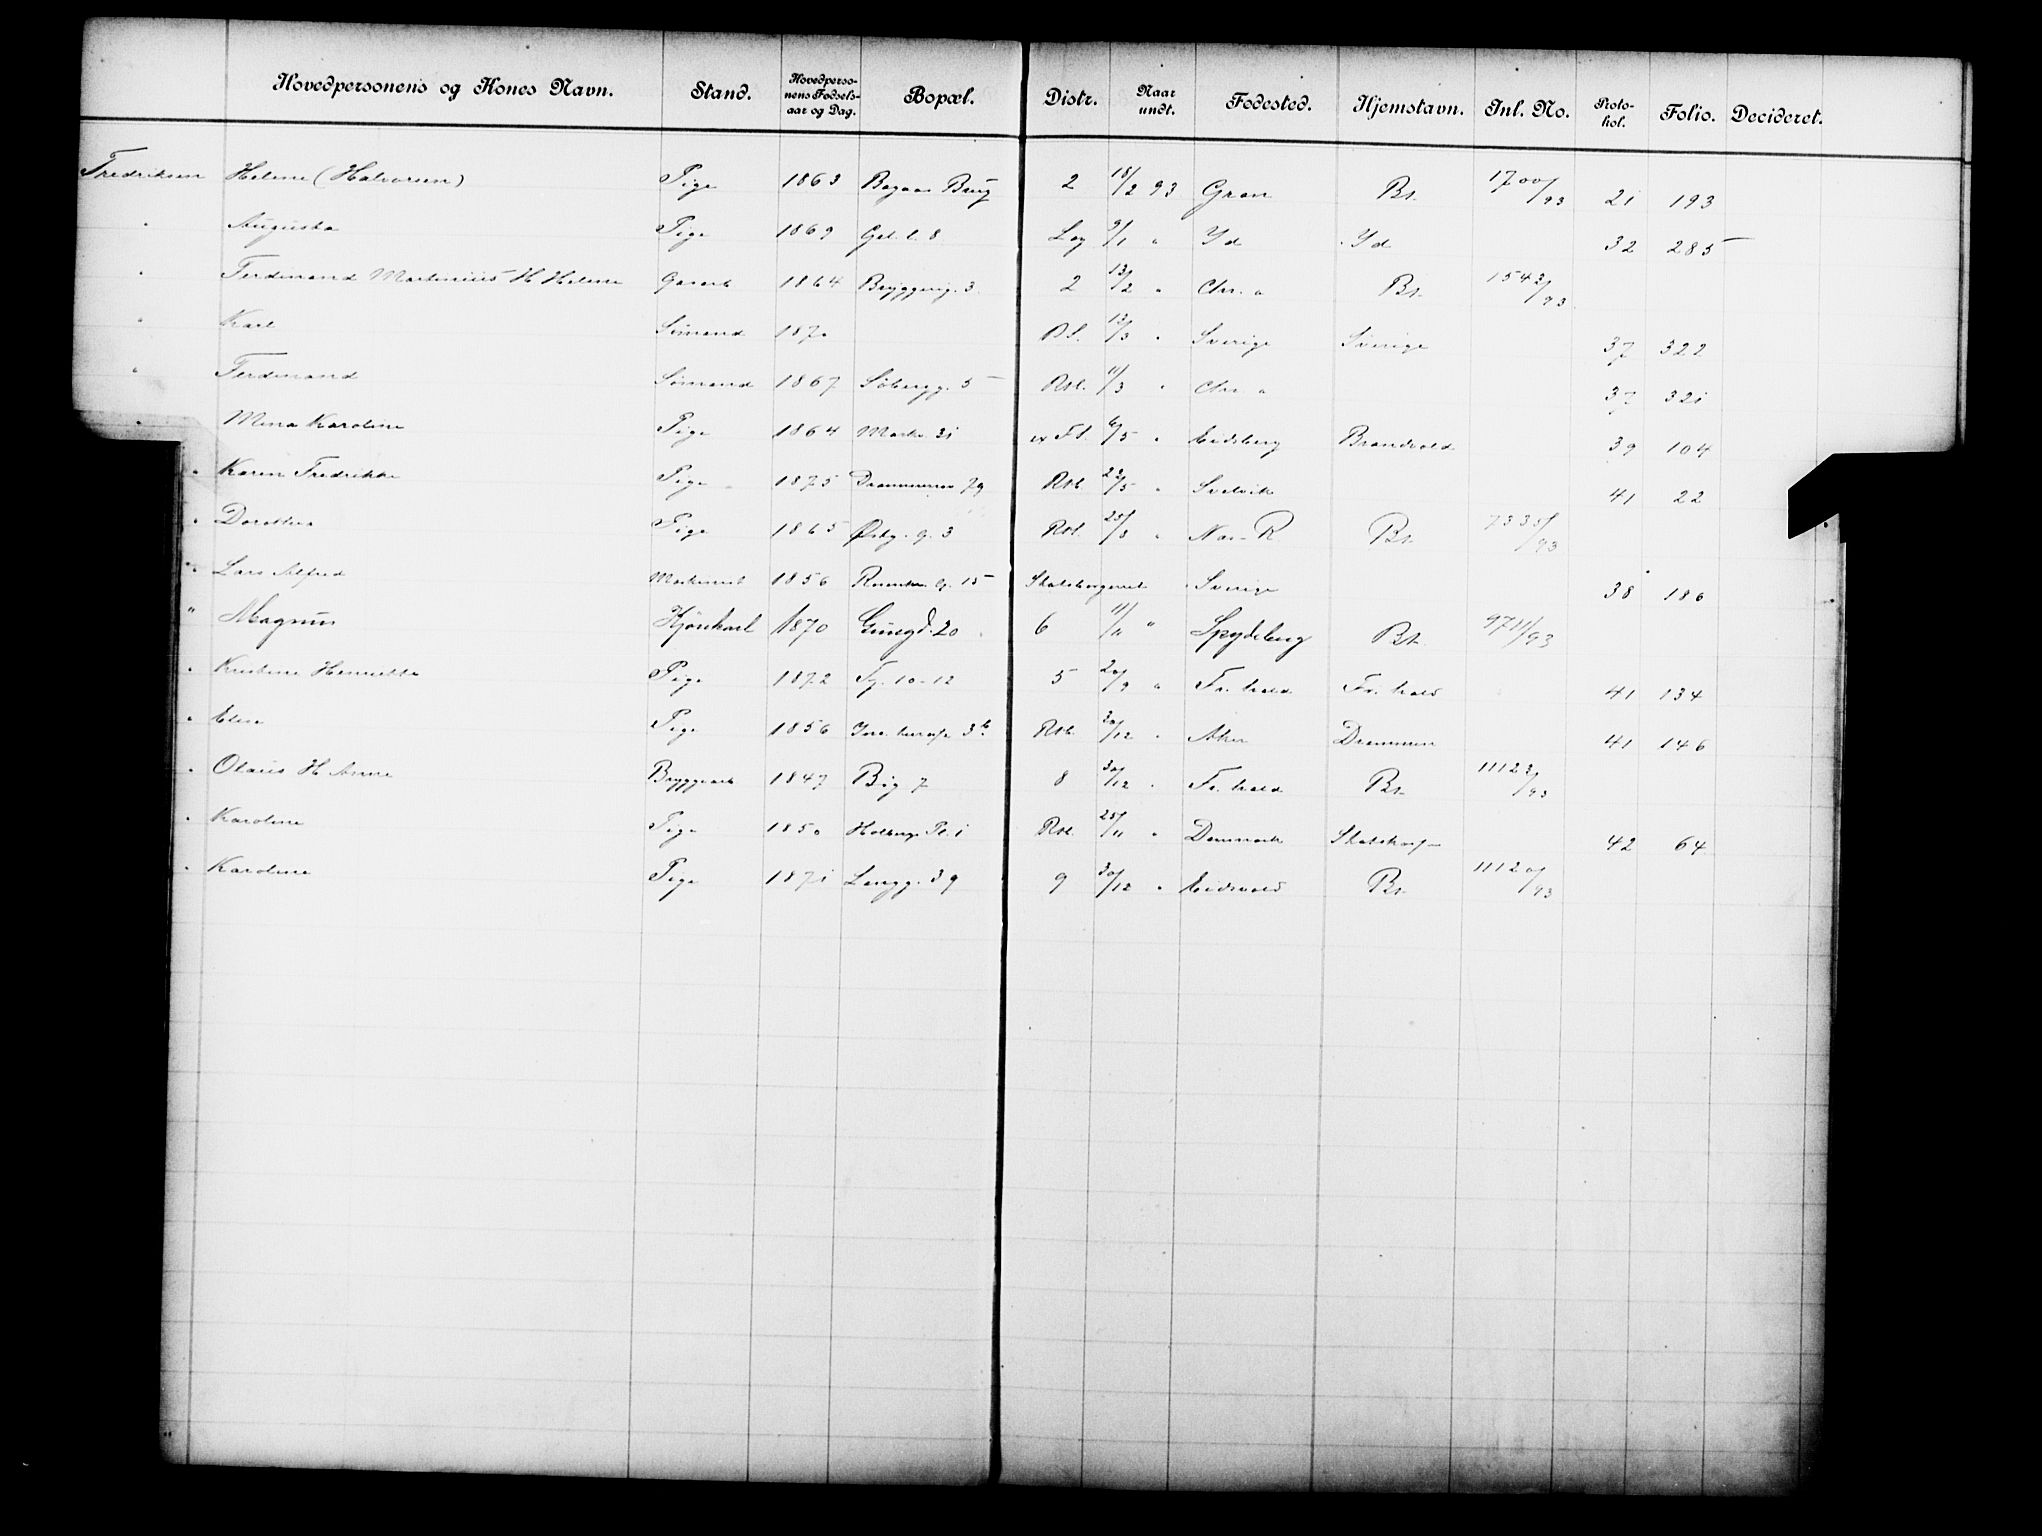 Hovedpersonens og Kones Navn. Stand. Hovedpersonens Fødselsaar og Dag. Bopæl. Distr. Naar undt. Fødested. Hjemstavn. Inl. No. Protokol. Folio. Decideret.
Fredriksen Helene (Halvorsen) Pige 1863 Brug 2 18/2 93 Gran Bt. 1700/93 21 193
" Augusta Pige 1869 8 9/1 " Id Id 32 285
" Ferdinand Martinius H Helene Gasarb 1864 Bryggerig. 3 2 13/2 " Chr.a Bt. 1542/93
" Karl Sømand 1870 13/3 " Sverige Sverige 37 322
" Ferdinand Sømand 1867 Søbergg. 5 Rst. 11/3 " Chr.a 37 321
" Mina Karoline Pige 1864 Markv. 31 6/5 " Eidsberg Brandvold 39 104
" Karen Fredrikke Pige 1875 Drammensv 79 Rst. 22/5 " Svelvik 41 22
" Dorothea Pige 1865 Østbg. g. 3 Rst. 25/8 " Nes-R Bt. 7335/93
" Lars Alfred 1856 15 Sverige 38 186
" Magnus Kjørekarl 1870 20 6 11/11 " Spydeberg Bt. 9711/93
" Kristine Henriette Pige 1872 10-12 5 20/9 " Fr.hald Fr.hald 41 134
" Elise Pige 1856 3b Rst. 30/12 " Aker Drammen 41 146
" Olaus H Anne Bryggearb 1847 7 8 30/12 " Fr.hald Bt. 11122/93
" Karoline Pige 1850 Holbergs Pl. 1 Rst. 25/11 " Danmark 42 64
" Karoline Pige 1871 Langg. 39 9 30/12 " Eidsvold Bt. 11120/93